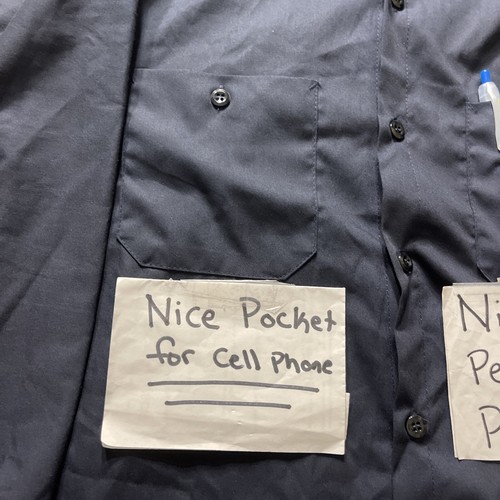 Nice Pocket
for Cell Phone